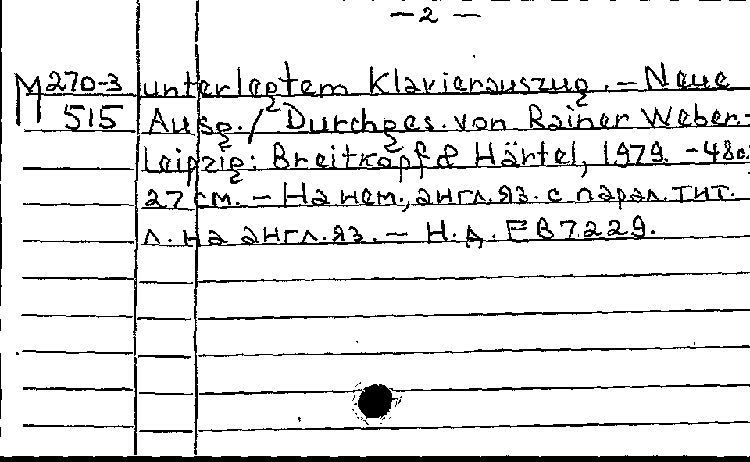 — 2 —
М 270-3 unterlegtem Klavierauszug. – Neue
515 Ausg. / Durchges. von Rainer Weber. –
Leipzig: Breitkopf & Härtel, 1979. – 48c.
27 см. – На нем., англ. яз. с парал. тит.
л. на англ. яз. – Н. д. EB 7229.